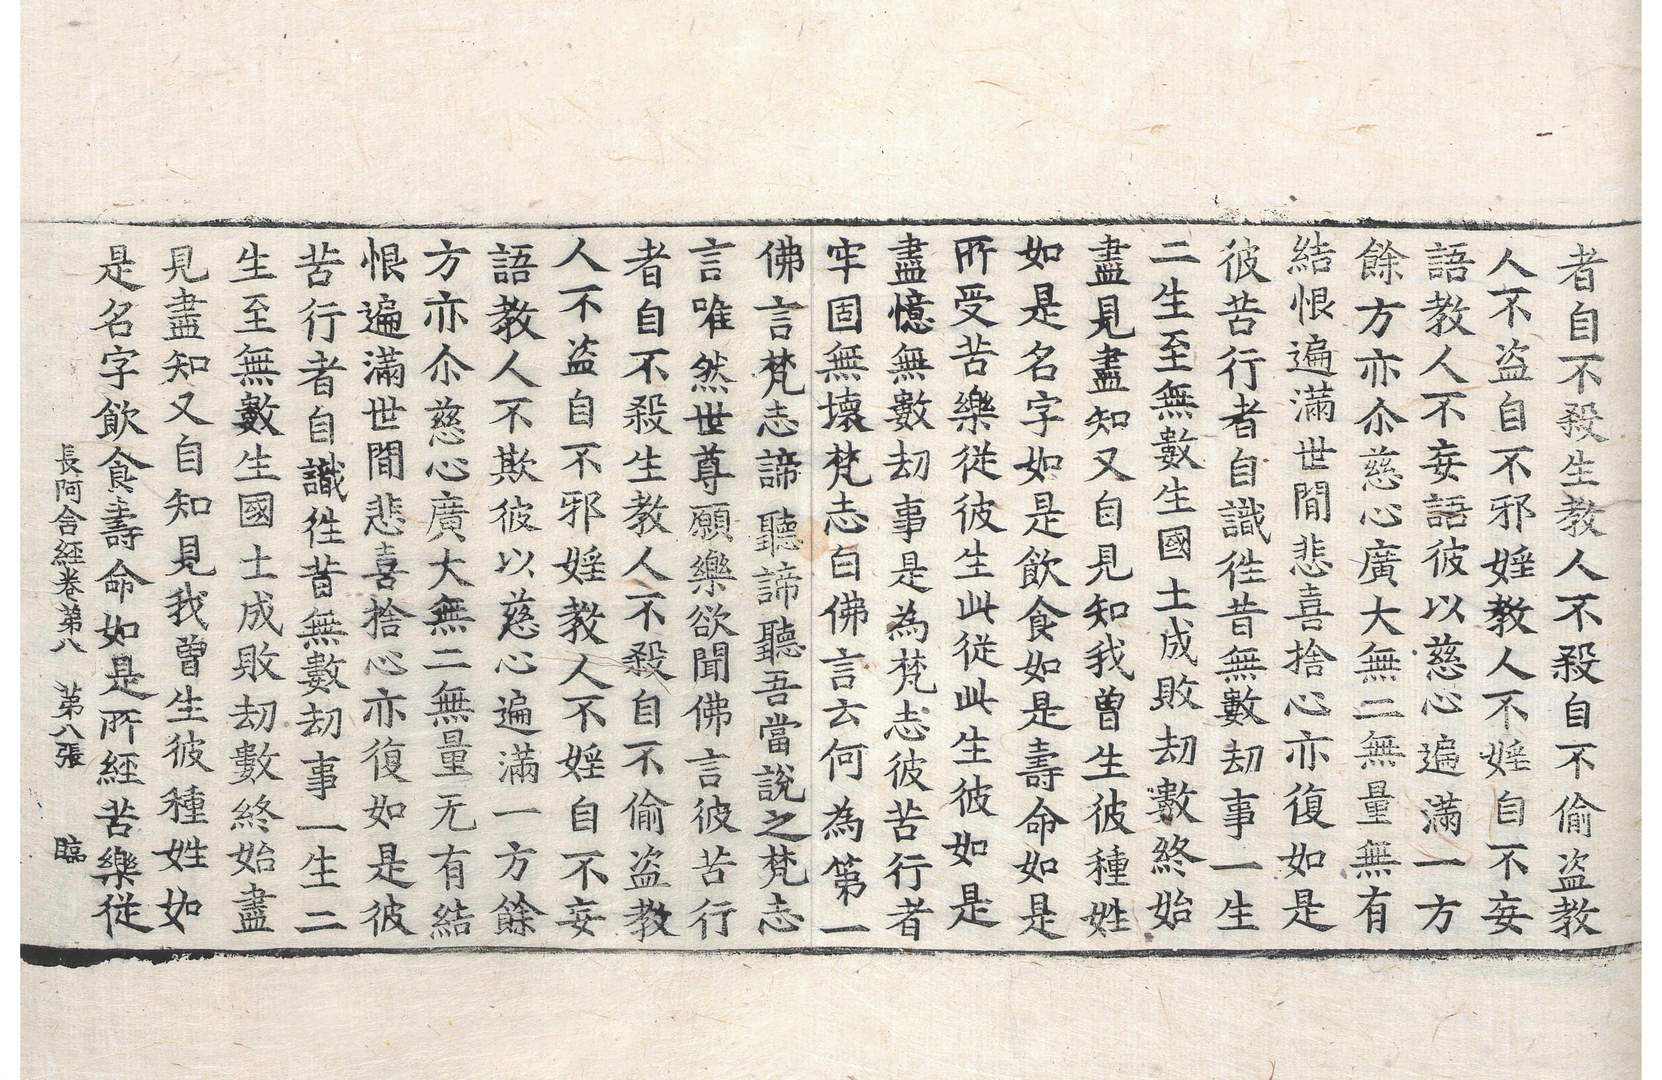 者自不殺生教人不殺自不偷盜教
人不盜自不邪婬教人不婬自不妄
語教人不妄語彼以慈心遍滿一方
餘方亦尒慈心廣大無二無量無有
結恨遍滿世間悲喜捨心亦復如是
彼苦行者自識徃昔無數劫事一生
二生至無數生國土成敗劫數終始
盡見盡知又自見知我曽生彼種姓
如是名字如是飲食如是壽命如是
所受苦樂從彼生此從此生彼如是
盡憶無數劫事是為梵志彼苦行者
牢固無壞梵志白佛言云何為第一
佛言梵志諦聽諦聽吾當說之梵志
言唯然世尊願樂欲聞佛言彼苦行
者自不殺生教人不殺自不偷盜教
人不盜自不邪婬教人不婬自不妄
語教人不欺彼以慈心遍滿一方餘
方亦尒慈心廣大無二無量无有結
恨遍滿世間悲喜捨心亦復如是彼
苦行者自識徃昔無數劫事一生二
生至無數生國土成敗劫數終始盡
見盡知又自知見我曽生彼種姓如
是名字飲食壽命如是所經苦樂從
長阿含經卷第八 第八張 臨